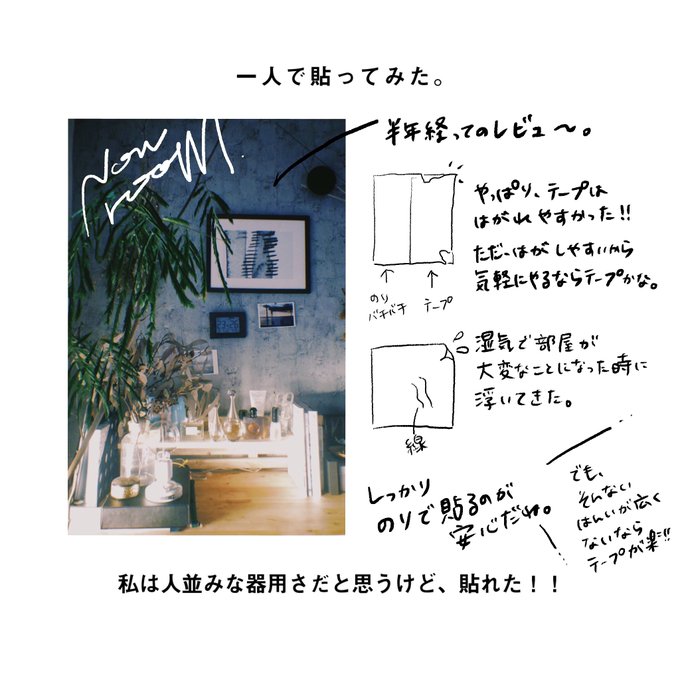 一人で貼ってみた。
Now
room!
半年経ってのレビュー〜。
やっぱり、テープは
はがれやすかった!!
ただ、はがしやすいから
気軽にやるならテープかな。
のり
バチバチ
テープ
湿気で部屋が
大変なことになった時に
浮いてきた。
線
しっかり
のりで貼るのが
安心だね。
でも、
そんない
はんいが広く
ないなら
テープが楽!!
私は人並みな器用さだと思うけど、貼れた！！